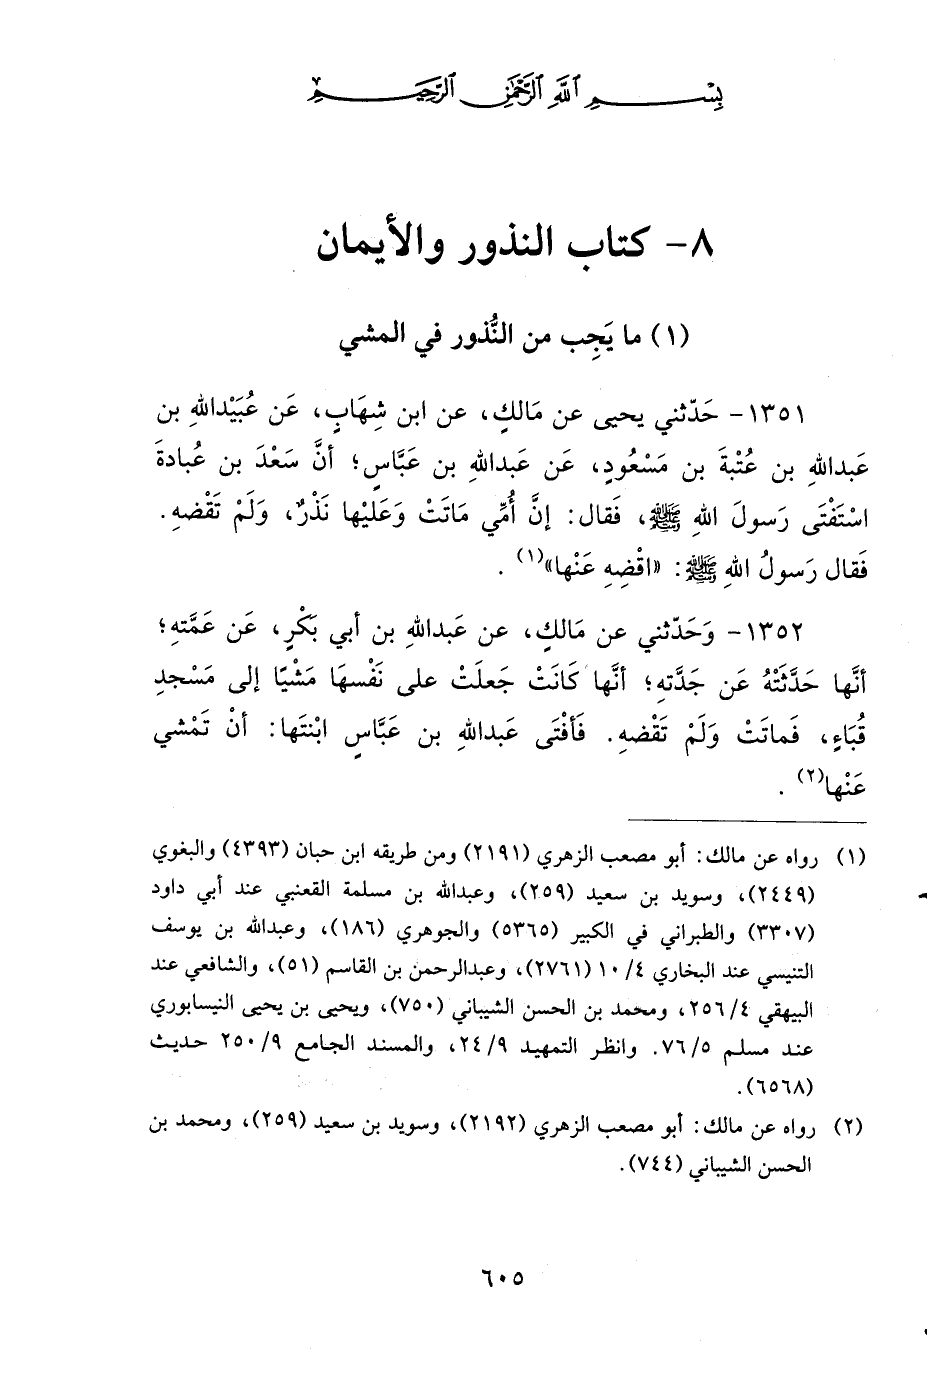 بِسْمِ ٱللَّهِ ٱلرَّحْمَٰنِ ٱلرَّحِيمِ
٨- كتاب النذور والأيمان
(١) ما يَجِب من النُّذور في المشي
١٣٥١- حَدّثني يحيى عن مَالكٍ، عن ابن شِهَابٍ، عَن عُبَيْداللهِ بن
عَبدالله بن عُتْبةَ بن مَسْعُودٍ، عَن عَبدالله بن عَبَّاسٍ؛ أنَّ سَعْدَ بن عُبادةَ
اسْتَفْتَى رَسولَ اللهِ ﷺ، فَقال: إنَّ أُمِّي مَاتَتْ وَعَلَيْها نَذْرٌ، وَلَمْ تَقْضهِ.
فَقال رَسولُ اللهِ ﷺ: «اقْضِهِ عَنْها»(١) .
١٣٥٢- وَحَدّثني عن مَالكٍ، عن عَبدالله بن أبي بَكْرٍ، عَن عَمَّته؛
أنَّها حَدَّثَتْهُ عَن جَدَّته؛ أنَّها كَانَتْ جَعلَتْ على نَفْسهَا مَشْيًا إلى مَسْجدِ
قُبَاءٍ، فَماتَتْ وَلَمْ تَقْضهِ. فَأفْتَى عَبدالله بن عَبَّاسٍ ابْنتَها: أنْ تَمْشي
عَنْها(٢) .
(١) رواه عن مالك: أبو مصعب الزهري (٢١٩١) ومن طريقه ابن حبان (٤٣٩٣) والبغوي
(٢٤٤٩)، وسويد بن سعيد (٢٥٩)، وعبدالله بن مسلمة القعنبي عند أبي داود
(٣٣٠٧) والطبراني في الكبير (٥٣٦٥) والجوهري (١٨٦)، وعبدالله بن يوسف
التنيسي عند البخاري ١٠/٤ (٢٧٦١)، وعبدالرحمن بن القاسم (٥١)، والشافعي عند
البيهقي ٢٥٦/٤، ومحمد بن الحسن الشيباني (٧٥٠)، ويحيى بن يحيى النيسابوري
عند مسلم ٧٦/٥. وانظر التمهيد ٢٤/٩، والمسند الجامع ٢٥٠/٩ حديث
(٦٥٦٨).
(٢) رواه عن مالك: أبو مصعب الزهري (٢١٩٢)، وسويد بن سعيد (٢٥٩)، ومحمد بن
الحسن الشيباني (٧٤٤).
٦٠٥